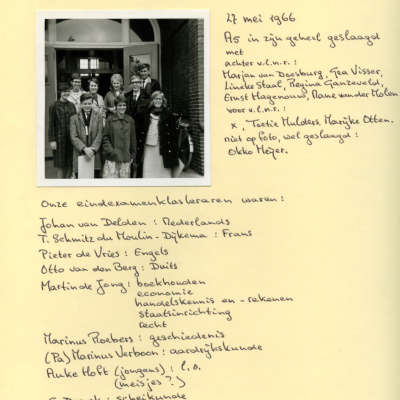 27 mei 1966
A5 in zijn geheel geslaagd
met
achter v.l.n.r.:
Marjan van Doesburg, Gea Visser,
Lineke Staal, Regina Ganzeveld,
Ernst Hagenouw, Hane van der Molen
voor v.l.n.r.:
x, Tootie Mulders, Marijke Otten.
niet op foto, wel geslaagd:
Okko Meijer.
Onze eindexamenklasleraren waren:
Johan van Delden: Nederlands
T. Schmitz du Moulin-Dijkema: Frans
Pieter de Vries: Engels
Otto van den Berg: Duits
Martin de Jong: boekhouden
economie
handelskennis en -rekenen
staatsinrichting
recht
Marinus Roebers: geschiedenis
(Pa) Marinus Verboon: aardrijkskunde
Auke Hoft (jongens): l.o.
(meisjes?)
: scheikunde